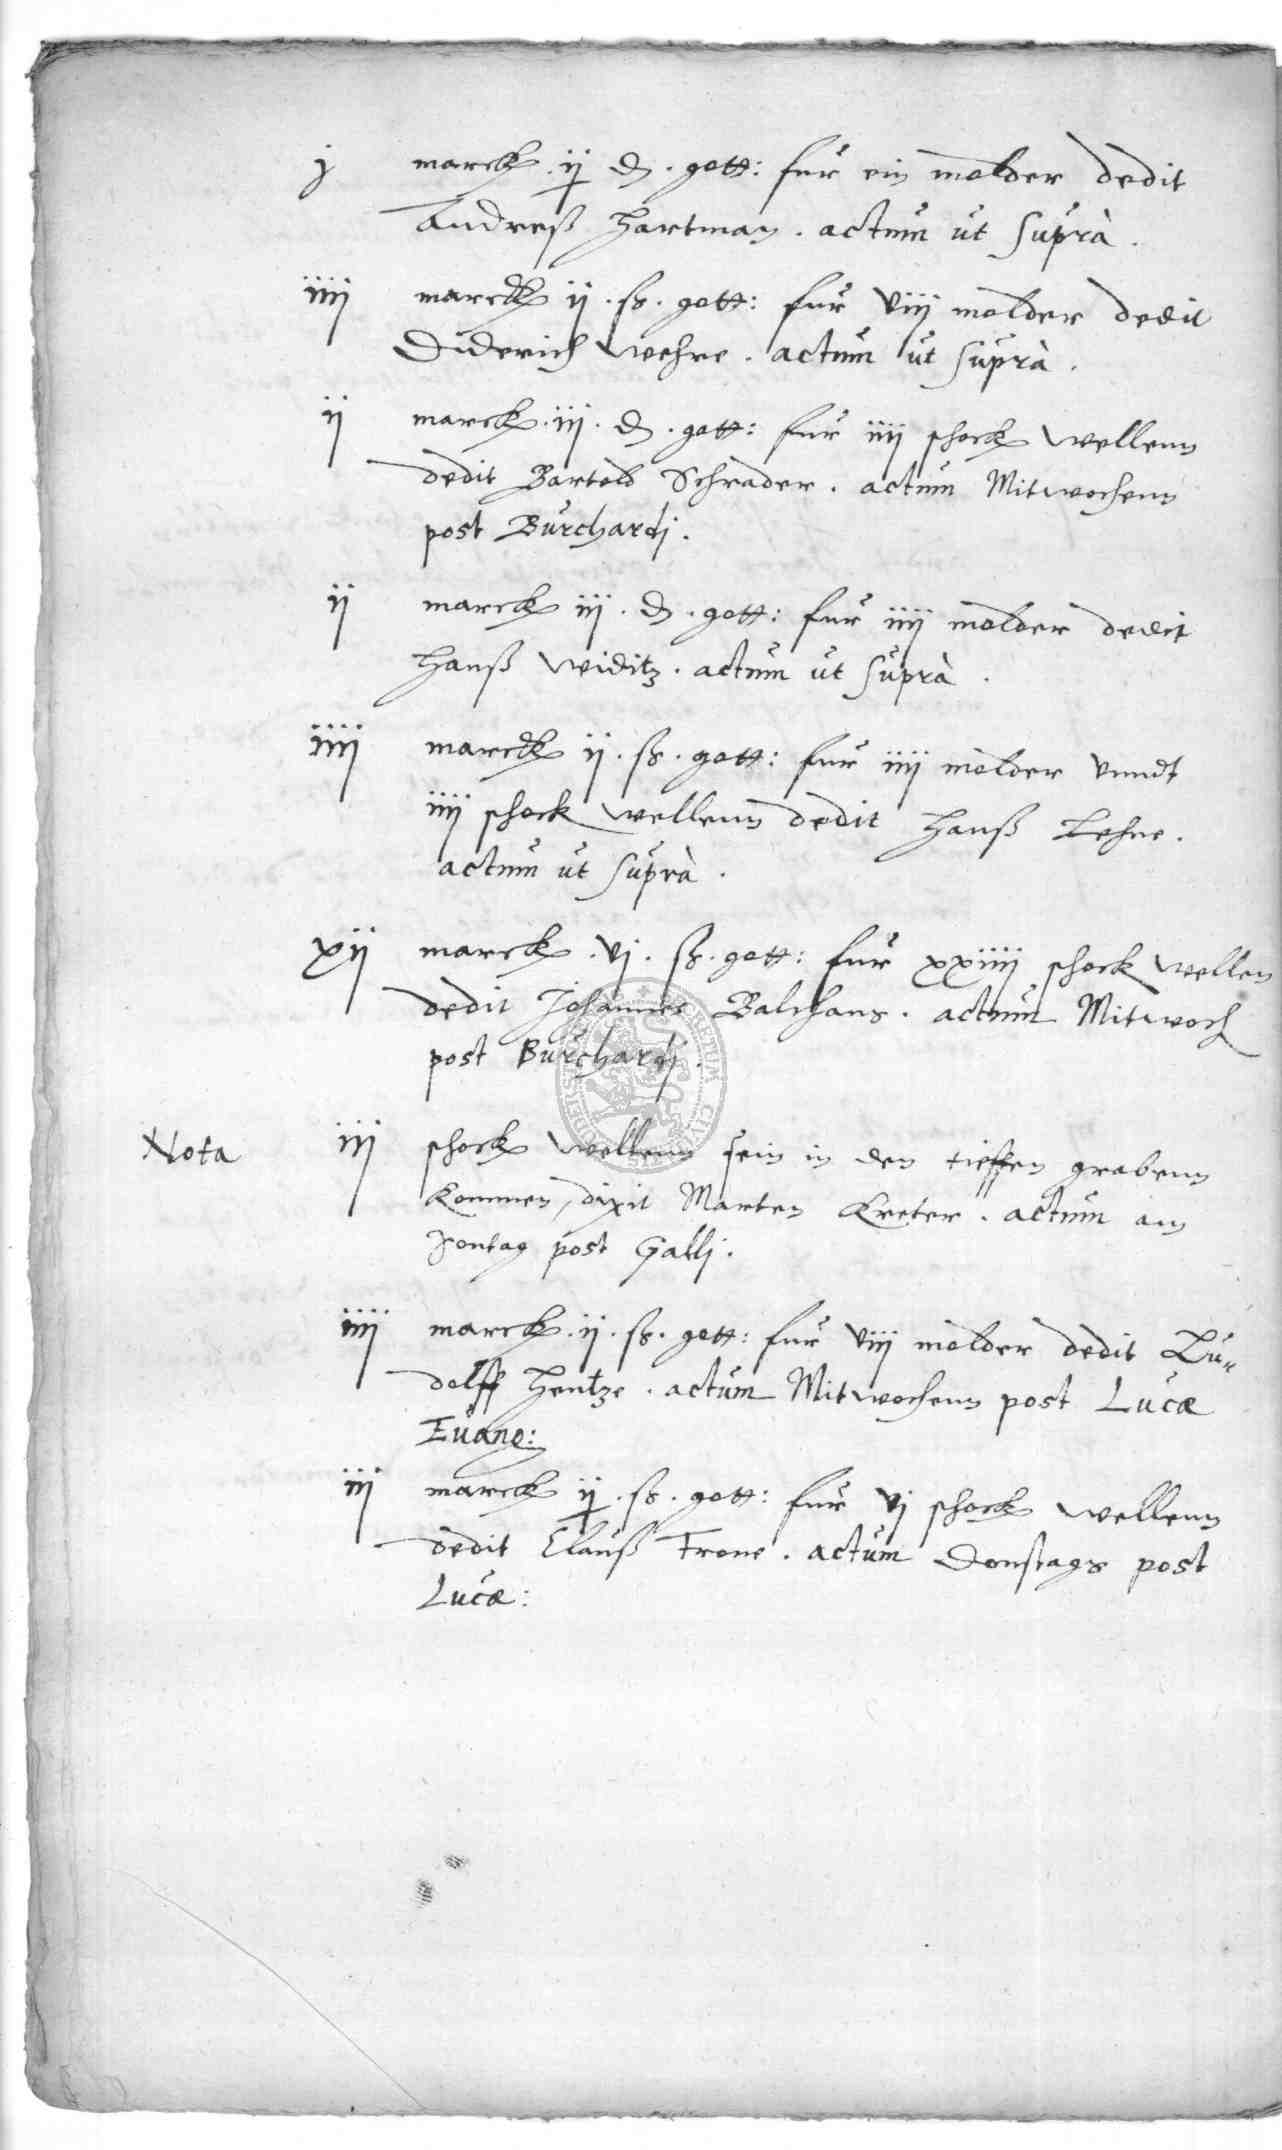 j marck. ij d. gott: fur ein molder dedit
Andreß Hartman. actum ut suprà.
iiij marck ij. ß. gott: fur viij molder dedit
Diderich Wehre. actum ut suprà.
ij marck. iij. d. gott: fur iiij schock wellenn
dedit Bartold Schrader. actum Mitwochenn
post Burchardj.
ij marck iij. d. gott: fur iiij molder dedit
Hanß Widitz. actum ut suprà.
iiij marck ij. ß. gott: fur iiij molder vnndt
iiij schock wellenn dedit Hanß Lehne.
actum ut suprà.
xij marck. vj. ß. gott: fur xxiiij schock wellen
dedit Johannes Balchans. actum Mitwoch
post Burchardj.
Nota iij schock wellenn sein in den tieffen grabenn
kommen, dixit Marten Kreter. actum am
Sontag post Gallj.
iiij marck. ij. ß. gott: fur viij molder dedit Lu-
dolff Hentze. actum Mitwochenn post Lucæ
Euang:
iij marck ij. ß. gott: fur vj schock wellenn
dedit Clauß Trone. actum Donstags post
Lucæ: